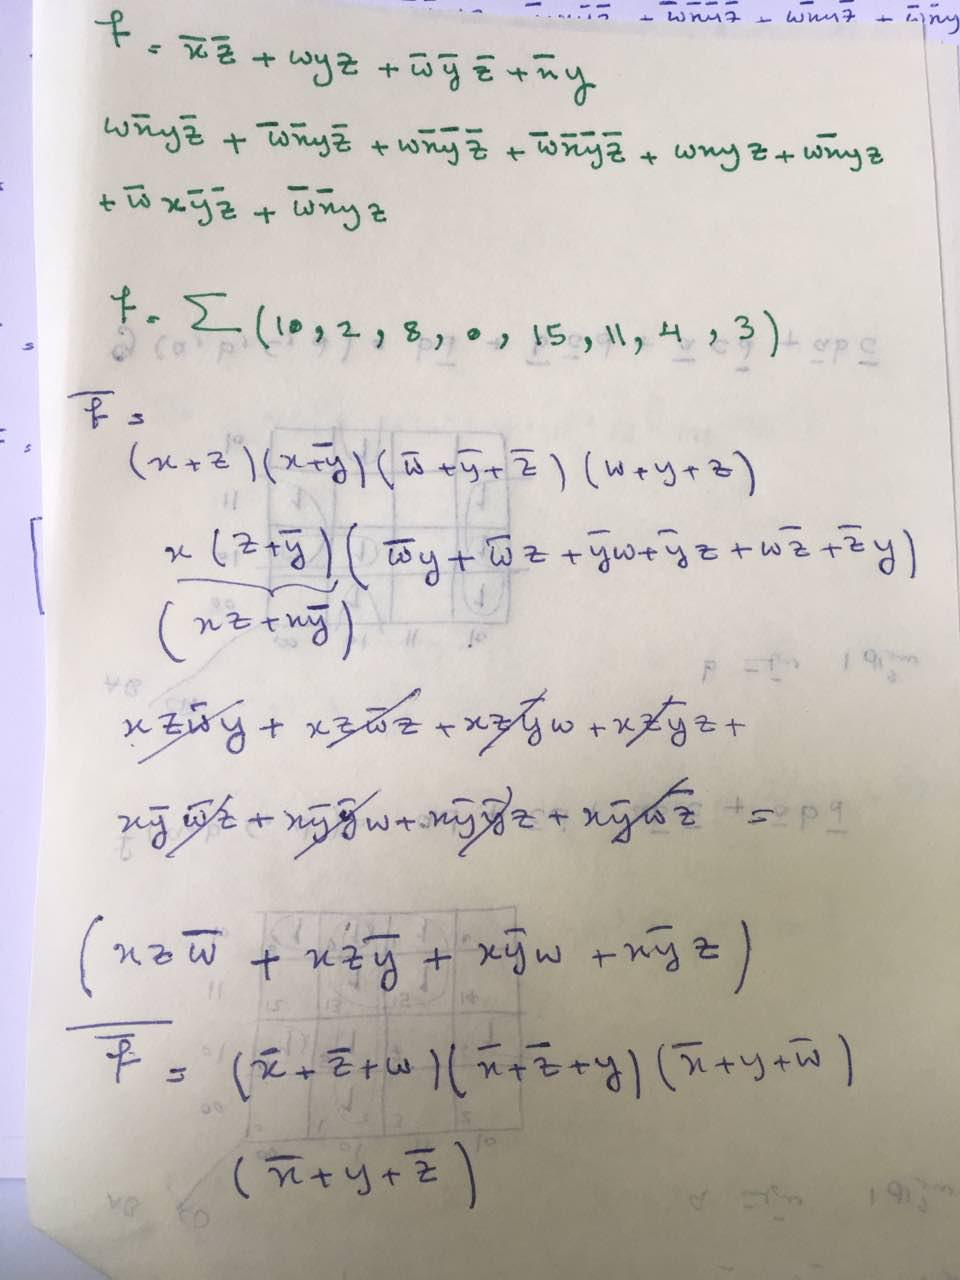 f = x̄z̄ + wyz + w̄ȳz̄ + x̄y
wx̄yz̄ + w̄x̄yz̄ + wx̄ȳz̄ + w̄x̄ȳz̄ + wxyz + wx̄yz
+ w̄xȳz̄ + w̄x̄yz
f = Σ(10, 2, 8, 0, 15, 11, 4, 3)
f̄ =
(x+z)(x+ȳ)(w̄+ȳ+z̄)(w+y+z)
x(z+ȳ)(w̄y + w̄z + ȳw + ȳz + wz̄ + z̄y)
(xz + xȳ)
xzw̄y + xzw̄z + xzȳw + xzȳz +
xȳw̄z + xȳȳw + xȳȳz + xȳwz̄ =
(xzw̄ + xzȳ + xȳw + xȳz)
f̿ = (x̄+z̄+w)(x̄+z̄+y)(x̄+y+w̄)
(x̄+y+z̄)